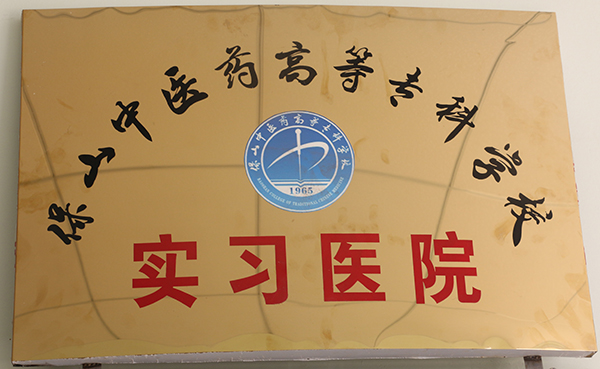 保山中医药高等专科学校
保山中医药高等专科学校
1965
BAOSHAN COLLEGE OF TRADITIONAL CHINESE MEDICINE
实习医院